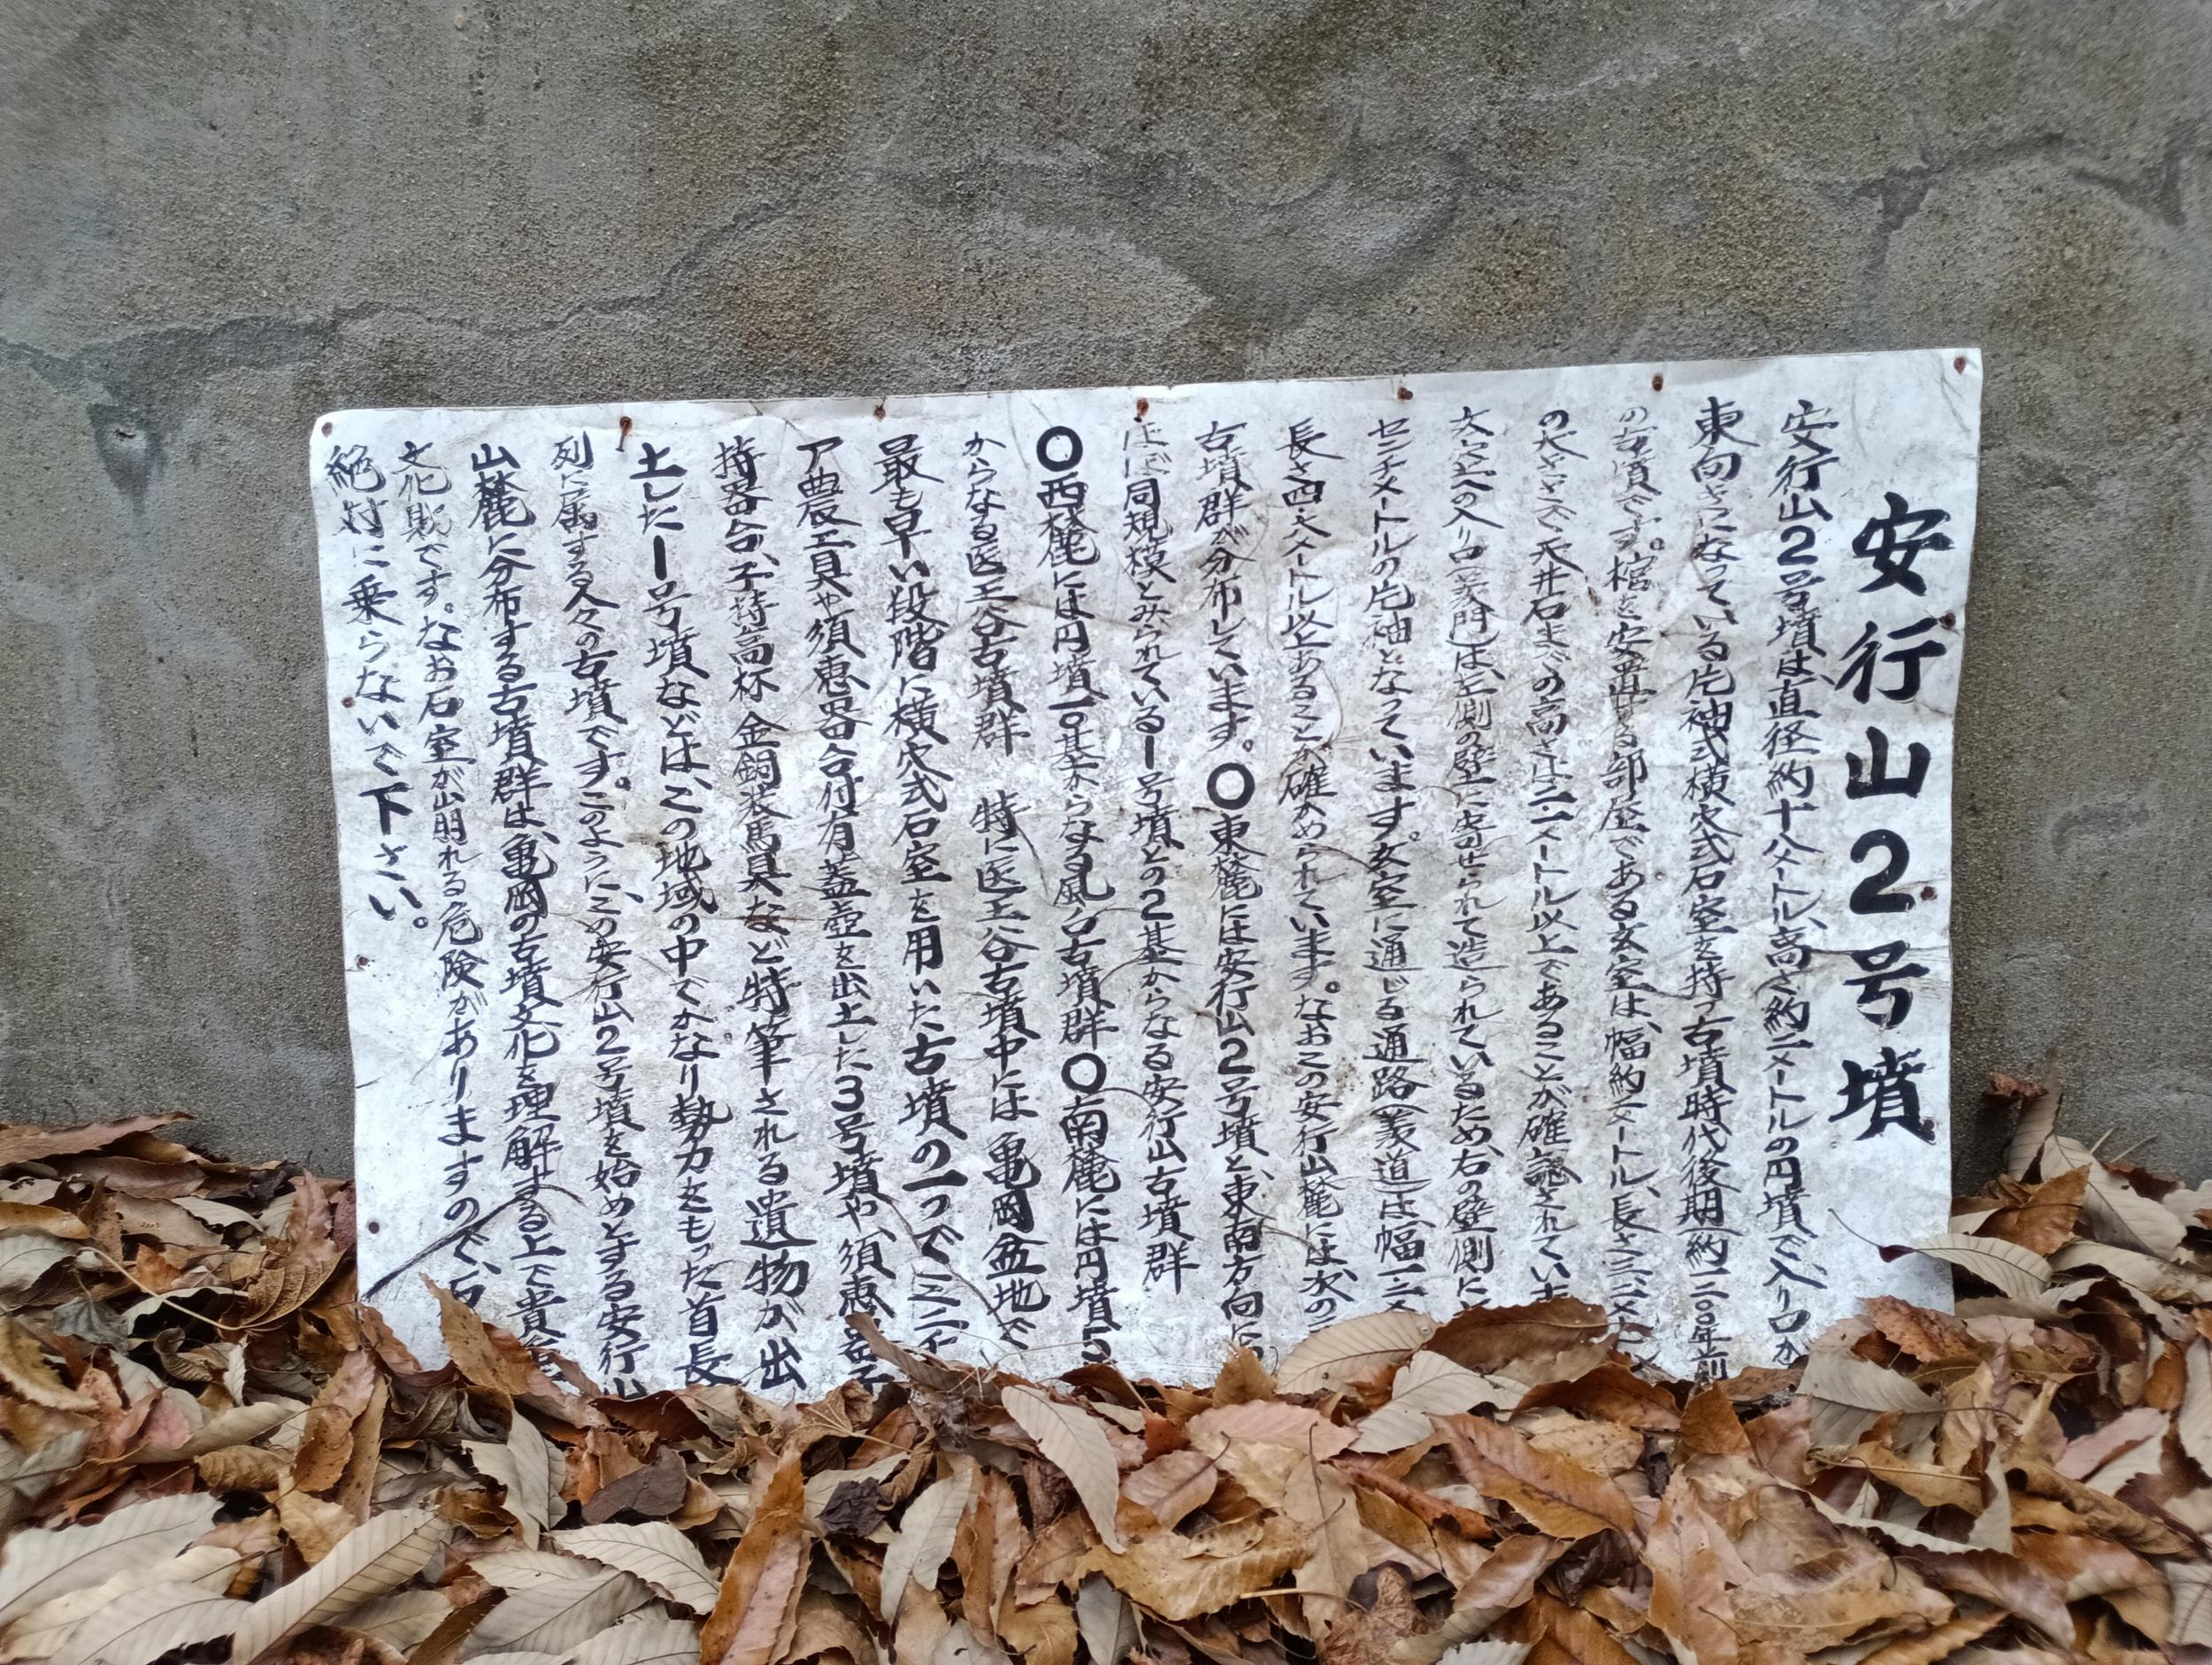 安行山2号墳
安行山2号墳は直径約十八メートル、高さ約二メートルの円墳で、入り口が
東向きになっている片袖式横穴式石室を持つ古墳時代後期(約一
の古墳です。棺を安置する部屋である玄室は、幅約二メートル、長さ
の大きさで、天井石までの高さは二・二メートル以上であることが確認されています
玄室への入り口(羨門)は、左側の壁に寄せられて造られているため、右の壁側に
センチメートルの片袖となっています。玄室に通じる通路(羨道)は幅一
長さ四・六メートル以上あることが確かめられています。なおこの安行山麓には次の
古墳群が分布しています。〇東麓には安行山2号墳と、東南方向に
ほぼ同規模とみられている1号墳との2基からなる安行山古墳群
〇西麓には円墳一〇基からなる風呂古墳群〇南麓には円墳5
からなる医王谷古墳群 特に医王谷古墳中には亀岡盆地で
最も早い段階に横穴式石室を用いた古墳の一つでミニチ
ア農工具や須恵器台付有蓋壺を出土した3号墳や、須恵器子
持器台、子持高杯 金銅装馬具など特筆される遺物が出
土した1号墳などは、この地域の中でかなり勢力をもった首長
列に属する人々の古墳です。このように、この安行山2号墳を始めとする安行山
山麓に分布する古墳群は、亀岡の古墳文化を理解する上で貴重
文化財です。なお石室が崩れる危険がありますので、石
絶対に乗らないで下さい。